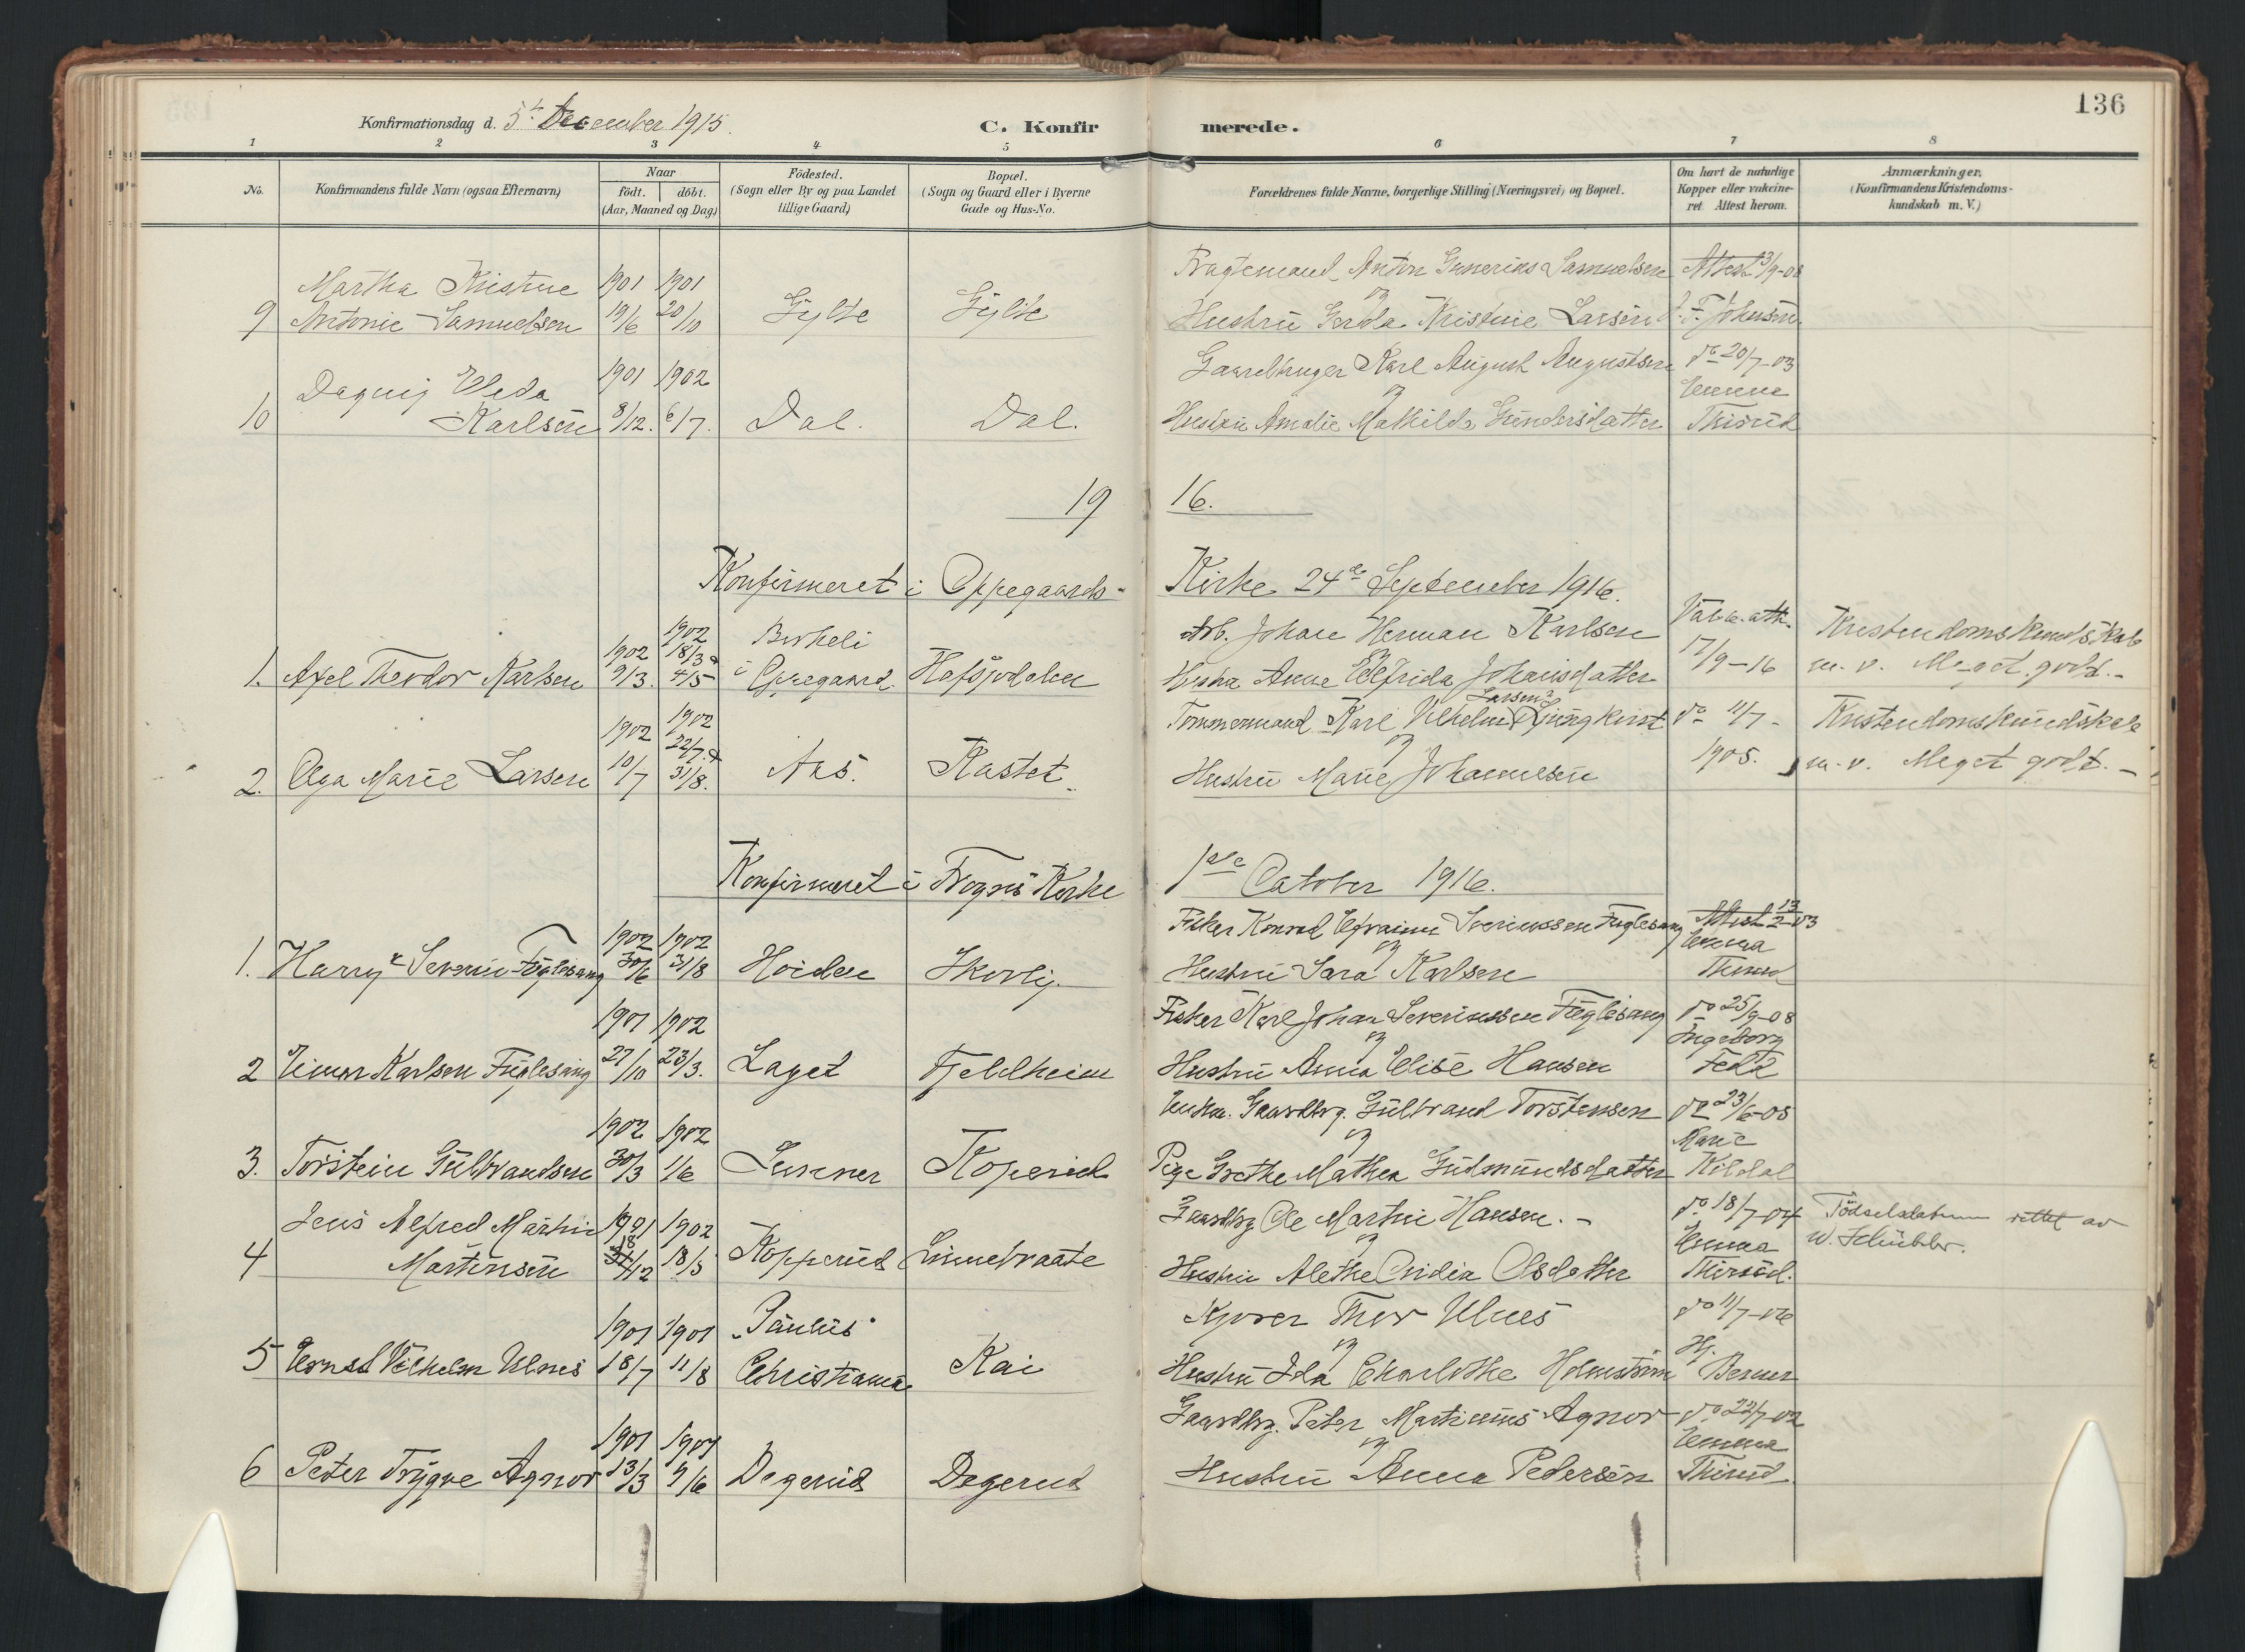 136
Konfirmationsdag d. 5t December 1915.
C. Konfirmerede.
1 2 3 4 5 6 7 8
No. Konfirmandens fulde Navn (ogsaa Efternavn) Naar født. døbt. (Aar, Maaned og Dag) Fødested. (Sogn eller By og paa Landet tillige Gaard) Bopæl. (Sogn og Gaard eller i Byerne Gade og Hus-No. Forældrenes fulde Navne, borgerlige Stilling (Næringsvei) og Bopæl. Om havt de naturlige Kopper eller vakcineret. Attest herom. Anmærkninger. (Konfirmandens Kristendomskundskab m. V.)
Martha Kristine 1901 1901 Fragtemand Anton Gunerius Samuelsen Attest 3/9-08
9 Antonie Samuelsen 19/6 20/10 Gylte Gylte og Hustru Gerda Kristine Larsen J. F. Johnsen.
Dagny 1901 1902 Gaardbruger Karl August Augustsen do 20/7-03 Emma
10 Karlsen 8/12. 6/7. Dal. Dal. og Hustru Amalie Mathilde Gundersdatter Thirud
1916.
Konfirmeret i Oppegaards Kirke 24de September 1916.
1902 1902 18/3 Birkeli Arb. Johan Herman Karlsen Vakc. att. Kristendomskundskab
1. Axel Theodor Karlsen 9/3. 4/5 i Oppegaard. Hustru Anna Elfrida Johansdatter 17/9-16 m. v. Meget godt.-
1902 1902 22/7 Larsen Tømmermand Karl Vilhelm Ljungkvist do 11/7- Kristendomskundskab
2. Olga Marie Larsen 10/7 31/8. Aas. Kastet. og Hustru Marie 1905. m. v. Meget godt.-
Konfirmeret i Frogns Kirke 1ste October 1916.
1902 1902 Fisker Konrad Efraim Severinssen Fuglesang Attest 13/2-03 Emma
1. Harry Severin Fuglesang 30/6 31/8 Hoiden Skovly. og Hustru Sara Karlsen Thirud
1901 1902 Fisker Karl Johan Severinssen Fuglesang do 25/9-08 Ingeborg
2 Einar Karlsen Fuglesang 27/10 23/3. Laget Fjeldheim og Hustru Anna Elise Hansen
1902 1902 Enkm. Gaardbrg. Gulbrand Torstensen do 23/6-05 Marie
3. Torstein Gulbrandsen 30/3 1/6 Kopperud og Pige Grethe Mathea Gudmundsdatter Kildal
Jens Alfred Martin 1901 1902 Gaardbrg Ole Martin Hansen.- do 18/7-04 Fødselsdatum rettet av
4 Martinsen 18/12 18/5 Kopperud Linnebraate og Hustru Alethe Olsdatter Emma Thirud. W. Schübeler.
1901 1901 Paulus Kjører Thor Ulnes do 11/7-06
5 Ernst Vilhelm Ulnes 18/7 11/8 Christiania Kai og Hustru Ida Charlotthe Holmstrøm Hj. Berner
1901 1901 Gaardbrg. Peter Martinius Agnor do 22/7-02 Emma
6 Peter Trygve Agnor 13/3 9/6 Degerud Degerud og Hustru Anna Pedersen Thirud.